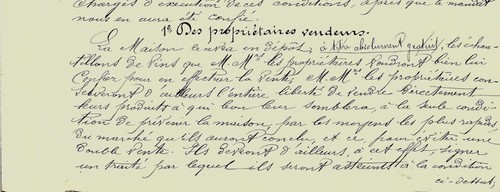 chargés d'exécution de ces conditions, après que le mandat
nous en aura été confié.
1º Des propriétaires vendeurs.
La Maison recevra en dépôt, à titre absolument gratuit, les échan-
tillons de vins que M. Mrs les propriétaires voudront bien lui
confier pour en effectuer la vente. M. Mrs les propriétaires con-
serveront d'ailleurs l'entière liberté de vendre directement
leurs produits à qui bon leur semblera, à la seule condi-
tion de prévenir la maison, par les moyens les plus rapides
du marché qu'ils auront conclu, et ce, pour éviter une
double vente. Ils devront d'ailleurs, à cet effet, signer
un traité par lequel ils seront astreints à la condition
ci-dessus,